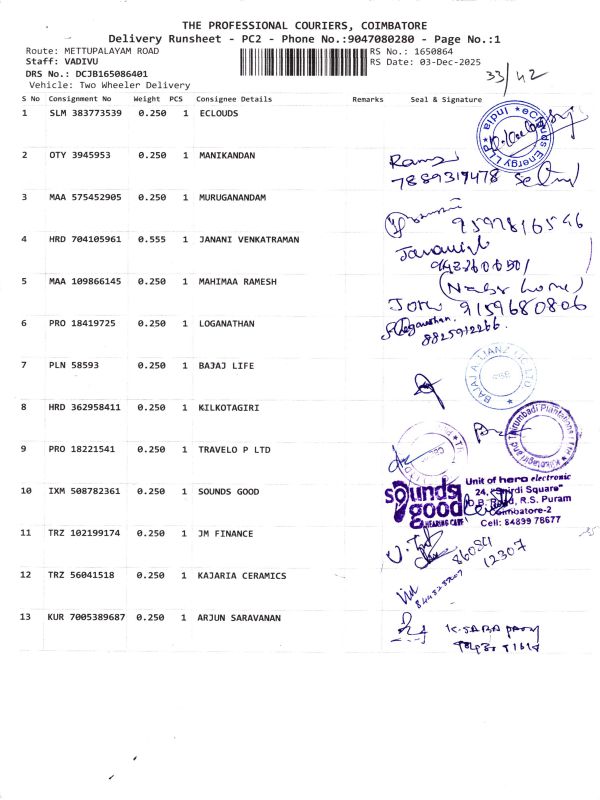 THE PROFESSIONAL COURIERS, COIMBATORE
Delivery Runsheet - PC2 - Phone No.:9047080280 - Page No.:1
Route: METTUPALAYAM ROAD RS No.: 1650864
Staff: VADIVU RS Date: 03-Dec-2025
DRS No.: DCJB165086401 33/42
Vehicle: Two Wheeler Delivery
S No Consignment No Weight PCS Consignee Details Remarks Seal & Signature
1 SLM 383773539 0.250 1 ECLOUDS
eClouds Energy LLP * India *
2 OTY 3945953 0.250 1 MANIKANDAN
7889319478
3 MAA 575452905 0.250 1 MURUGANANDAM
9597816546
4 HRD 704105961 0.555 1 JANANI VENKATRAMAN
5 MAA 109866145 0.250 1 MAHIMAA RAMESH
9159680806
6 PRO 18419725 0.250 1 LOGANATHAN
Loganathan.
8825912266.
7 PLN 58593 0.250 1 BAJAJ LIFE
8 HRD 362958411 0.250 1 KILKOTAGIRI
Kilkotagiri and Thirumbadi Plantations LTD
9 PRO 18221541 0.250 1 TRAVELO P LTD
10 IXM 508782361 0.250 1 SOUNDS GOOD
sounds good
HEARING CARE
Unit of hero electronic
24, "Shirdi Square"
D.B. Road, R.S. Puram
Coimbatore-2
Cell: 84899 78677
11 TRZ 102199174 0.250 1 JM FINANCE
12307
12 TRZ 56041518 0.250 1 KAJARIA CERAMICS
13 KUR 7005389687 0.250 1 ARJUN SARAVANAN